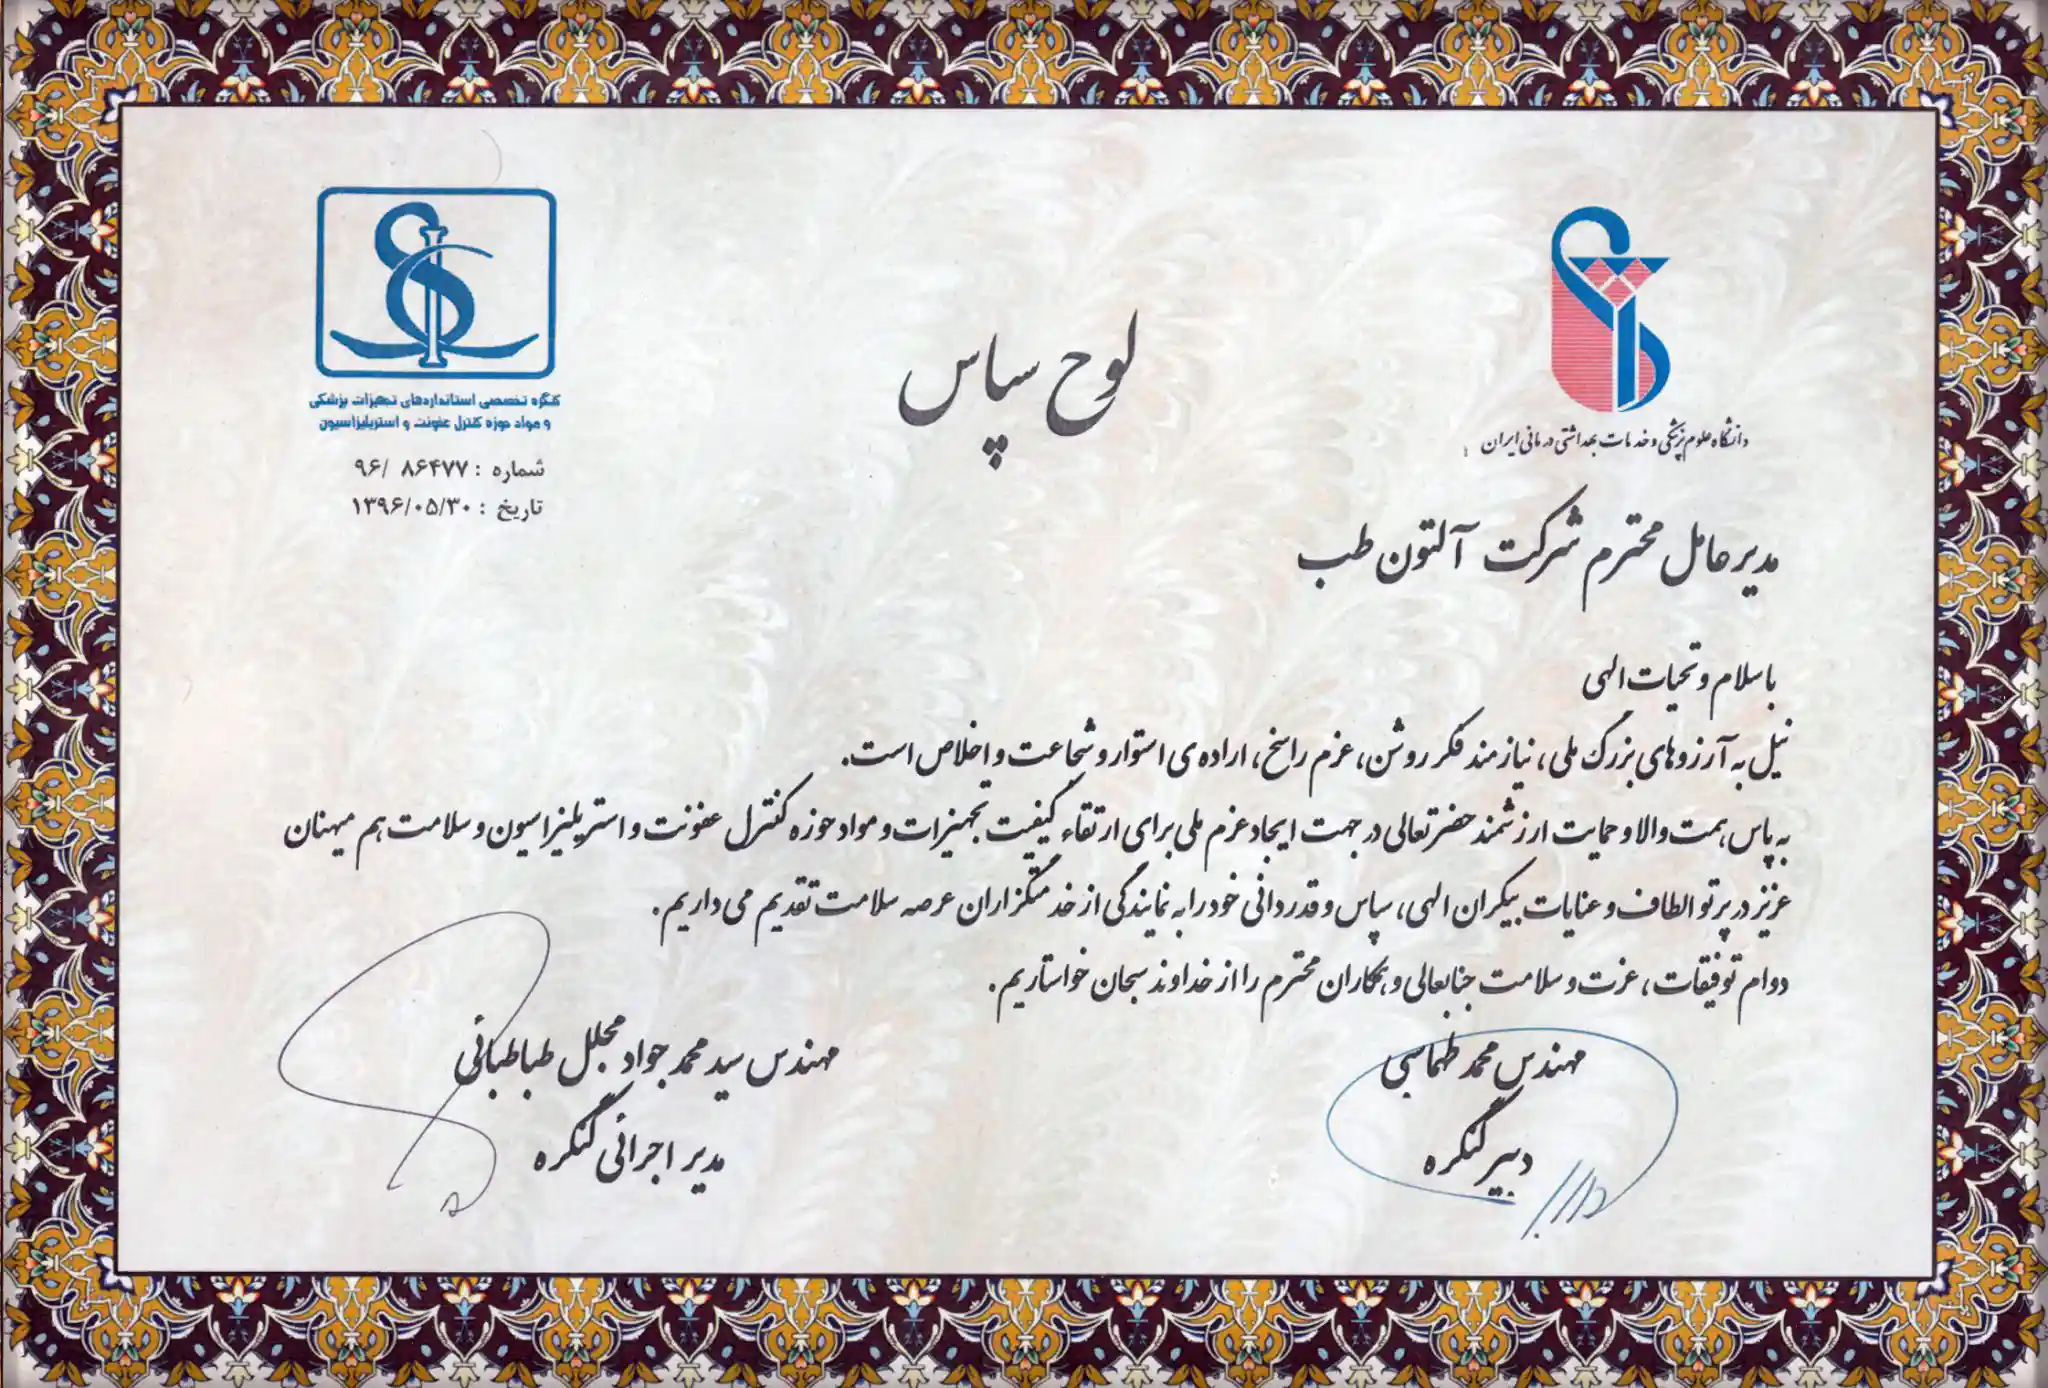 دانشگاه علوم پزشکی و خدمات بهداشتی درمانی ایران
کنگره تخصصی استانداردهای تجهیزات پزشکی
و مواد حوزه کنترل عفونت و استریلیزاسیون
شماره : ۸۶۴۷۷ /۹۶
تاریخ : ۱۳۹۶/۰۵/۳۰
لوح سپاس
مدیر عامل محترم شرکت آلتون طب
با سلام و تحیات الهی
نیل به آرزوهای بزرگ ملی، نیازمند فکر روشن، عزم راسخ، اراده ی استوار و شجاعت و اخلاص است.
به پاس همت والا و حمایت ارزشمند حضرتعالی در جهت ایجاد عزم ملی برای ارتقاء کیفیت تجهیزات و مواد حوزه کنترل عفونت و استریلیزاسیون و سلامت هم میهنان
عزیز در پرتو الطاف و عنایات بیکران الهی، سپاس و قدردانی خود را به نمایندگی از خدمتگزاران عرصه سلامت تقدیم می داریم.
دوام توفیقات، عزت و سلامت جنابعالی و همکاران محترم را از خداوند سبحان خواستاریم.
مهندس محمد طهماسبی
دبیر کنگره
مهندس سید محمد جواد مجلل طباطبائی
مدیر اجرائی کنگره